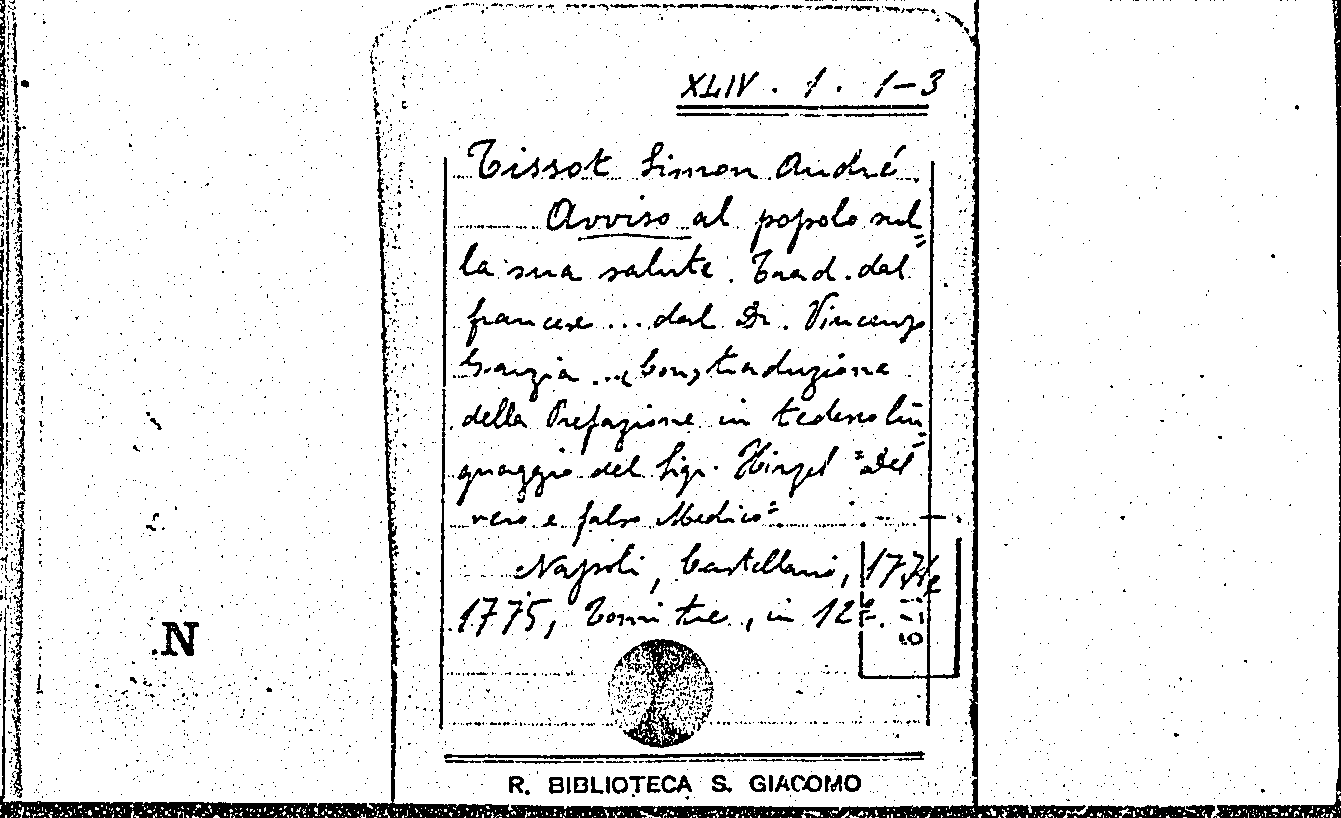 XLIV . 1 . 1-3
Tissot Simon André.
Avviso al popolo sul=
la sua salute. Trad. dal
francese ... dal Dr. Vincenzo
Garzia ... Con traduzione
della Prefazione in tedesco lin=
guaggio del Sig. Hirzel "Del
vero e falso Medico"
Napoli, Castellano, 177 e
1775, Tomi tre, in 12º.
N
R. BIBLIOTECA S. GIACOMO